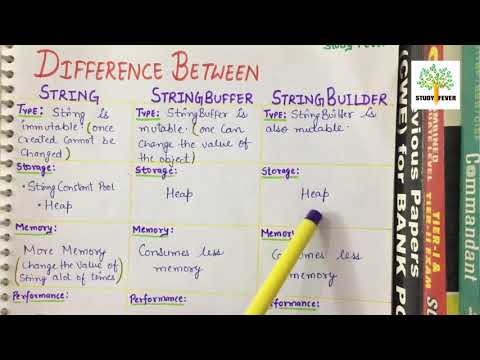 Study Fever
DIFFERENCE BETWEEN
STRING
STRINGBUFFER
STRINGBUILDER
TYPE: String is
immutable (once
created cannot be
changed)
TYPE: StringBuffer is
mutable (one can
change the value of
the object)
TYPE: StringBuilder is
also mutable.
Storage:
• String Constant Pool
• Heap
Storage:
Heap
Storage:
Heap
Memory:
More Memory
(Change the value of
String a lot of times)
Memory:
Consumes less
memory
Memory:
Consumes less
memory
Performance:
Performance:
Performance:
STUDY FEVER
(CWE) for BANK PO
Previous Papers
COMBINED
GRADUATE LEVEL
TIER-I &
TIER-II EXAM
Commandant